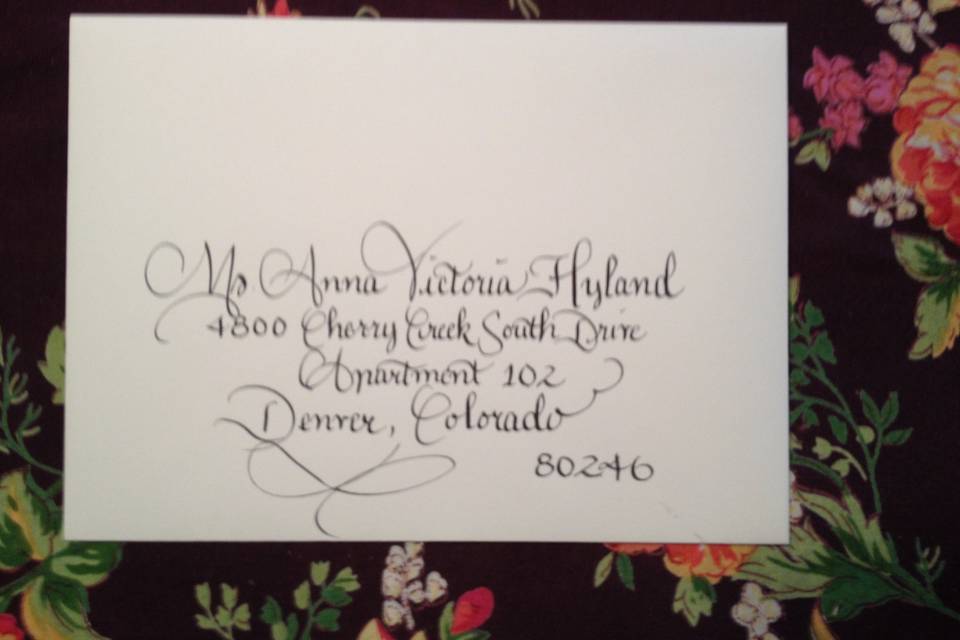 Ms. Anna Victoria Hyland
4800 Cherry Creek South Drive
Apartment 102
Denver, Colorado
80246